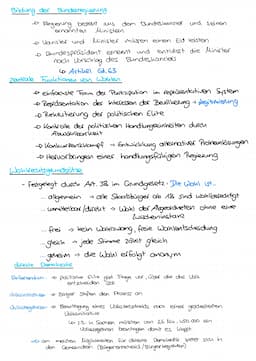 Bildung der Bundesregierung
↳ Regierung besteht aus dem Bundeskanzler und seinen
ernannten Ministern
↳ Kanzler und Minister müssen einen Eid leisten
↳ Bundespräsident ernennt und entlässt die Minister
nach Vorschlag des Bundeskanzlers
↳ Artikel 62, 63
zentrale Funktionen von Wahlen
↳ einfachste Form der Partizipation im repräsentativen System
↳ Repräsentation der Interessen der Bevölkerung → Legitimierung
↳ Rekrutierung der politischen Elite
↳ Kontrolle der politischen Handlungseinheiten durch
Abwählbarkeit
↳ Konkurrenzkampf → Entwicklung alternativer Problemlösungen
↳ Hervorbringen einer handlungsfähigen Regierung
Wahlrechtsgrundsätze
- Festgelegt durch Art. 38 im Grundgesetz. Die Wahl ist...
- allgemein → alle Staatsbürger ab 18 sind wahlberechtigt
- unmittelbar/direkt → Wahl der Abgeordneten ohne eine
Zwischeninstanz
- frei → kein Wahlzwang, freie Wahlentscheidung
- gleich → jede Stimme zählt gleich
- geheim → die Wahl erfolgt anonym
direkte Demokratie
→ politische Frage über die das Volk
entscheidet
→ Bürger stoßen den Prozess an
→ Beantragung eines Volksentscheids nach einer gescheiterten
Volksinitiative
↳ in Sachsen müssten
Volksbegehren
↳ am meisten für direkte Demokratie bietet sich in
den Gemeinden (Bürgerentscheid/Bürgerbegehren)